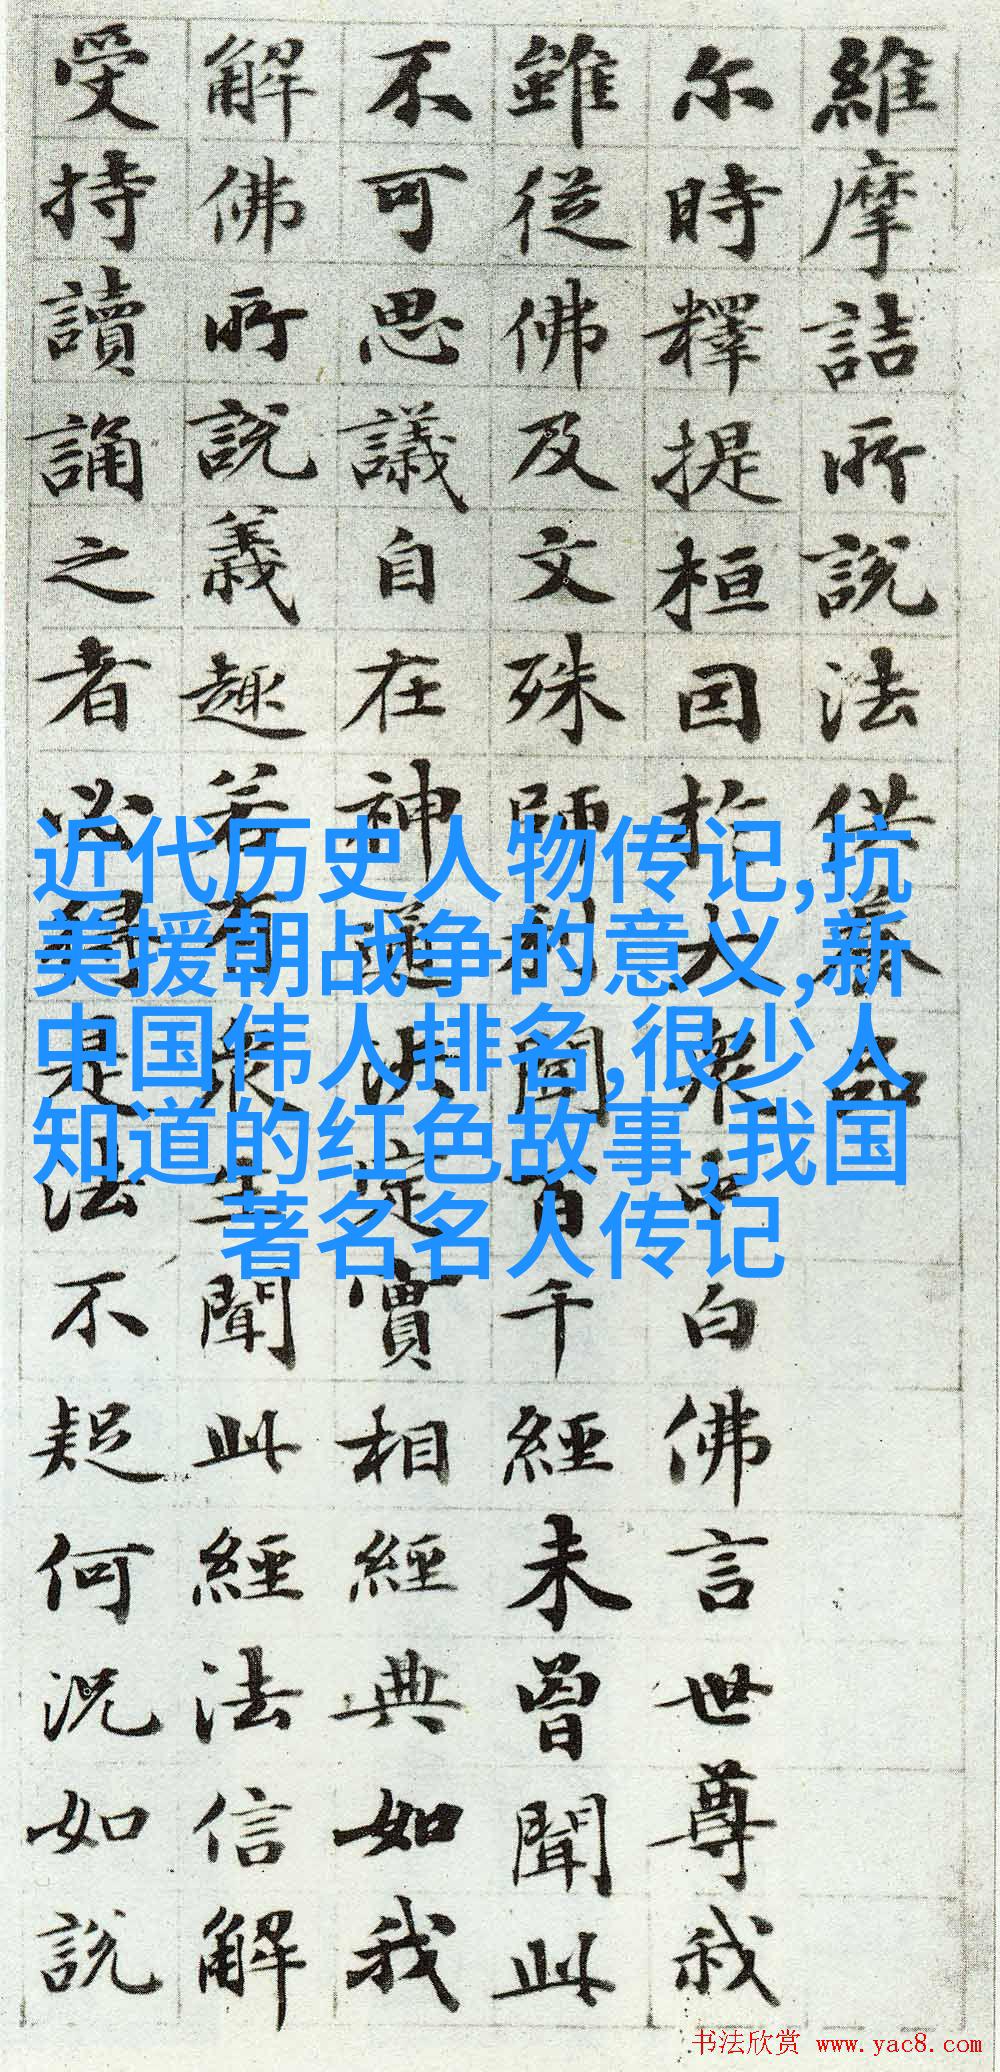 維摩詰所說法供養品
尓時釋提桓因扵大衆中白佛言世尊我
雖從佛及文殊師利聞百千經未曾聞此
不可思議自在神通决定實相經典如我
解佛所說義趣若有衆生聞此經法信解
受持讀誦之者必得是法不疑何况如說
近代历史人物传记,抗
美援朝战争的意义,新
中国伟人排名,很少人
知道的红色故事,我国
著名名人传记
书法欣赏 www.yac8.com